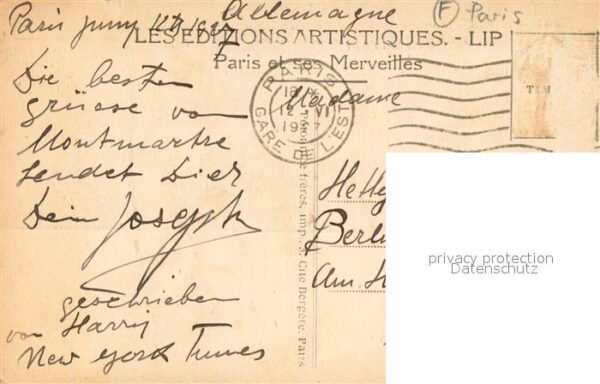 Allemagne
F Paris
Paris Juny 12th 1927
LES EDITIONS ARTISTIQUES. - LIP
Paris et ses Merveilles
Die besten
grüsse von
Montmartre
sendet Dier
Dein Joseph
geschrieben
von Harry
New York Times
PARIS
18
12 VI
1927
GARE DE L'EST
frères, imp., 5, Cité Bergère, Paris
TIM
Madame
Hetty
Berli
Am. H
privacy protection
Datenschutz